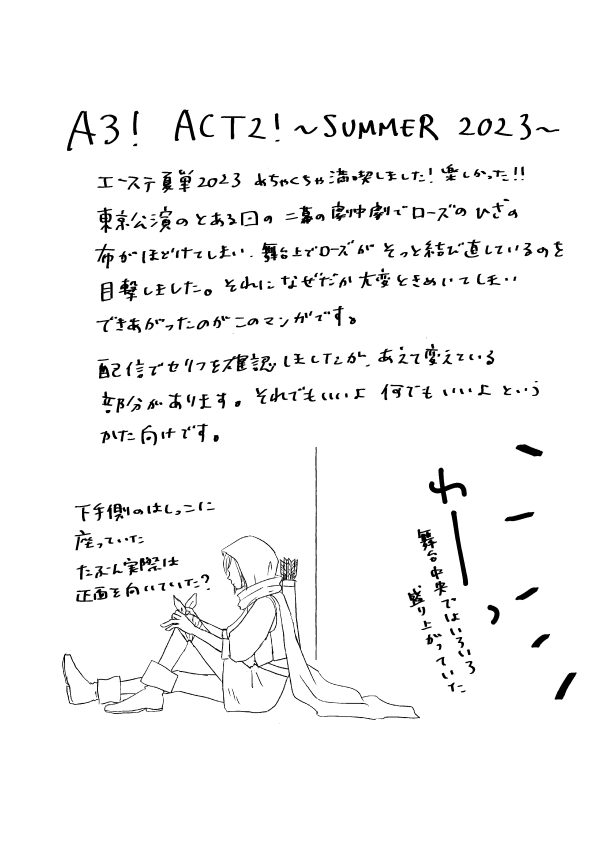 A3! ACT2! ～SUMMER 2023～
エーステ夏単2023 めちゃくちゃ満喫しました!楽しかった!!
東京公演のとある日の 二幕の劇中劇でローズのひざの
布がほどけてしまい、舞台上でローズが そっと結び直しているのを
目撃しました。それになぜだか大変ときめいてしまい
できあがったのがこのマンガです。
配信でセリフを確認しましたが、あえて変えている
部分があります。それでもいいよ 何でもいいよ という
かた向けです。
下手側のはしっこに
座っていた
たぶん実際は
正面を向いていた?
わーっ
舞台中央ではいろいろ
盛り上がっていた